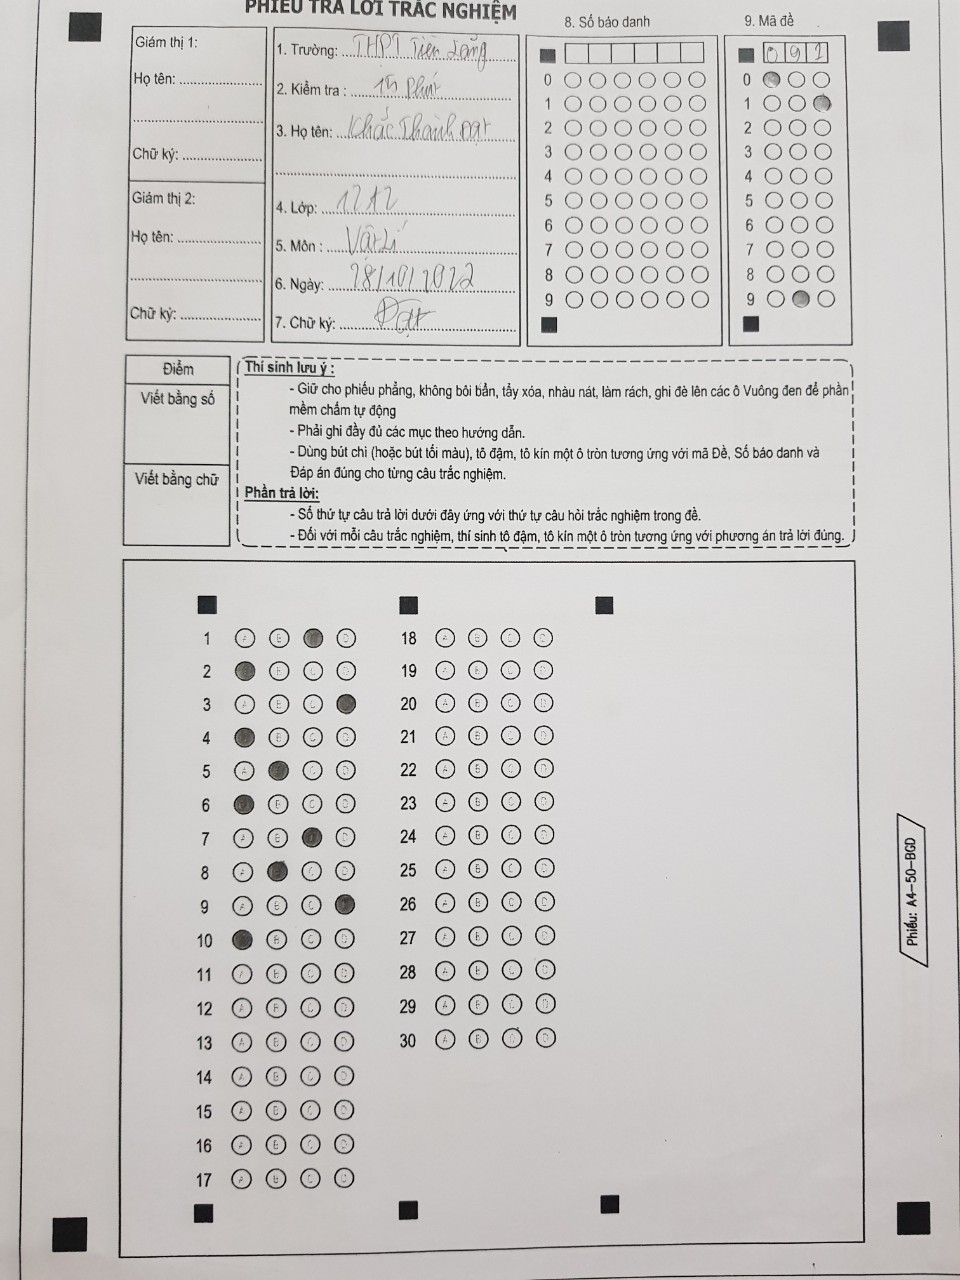 PHIẾU TRẢ LỜI TRẮC NGHIỆM
Giám thị 1:
Họ tên:
Chữ ký:
Giám thị 2:
Họ tên:
Chữ ký:
1. Trường: THPT Tiên Lãng
2. Kiểm tra : 15 Phút
3. Họ tên: Khắc Thành Đạt
4. Lớp: 12A2
5. Môn : Vật Lí
6. Ngày: 28/10/2022
7. Chữ ký: Đạt
8. Số báo danh
0
1
2
3
4
5
6
7
8
9
9. Mã đề
0 9 1
0
1
2
3
4
5
6
7
8
9
Điểm
Viết bằng số
Viết bằng chữ
Thí sinh lưu ý :
- Giữ cho phiếu phẳng, không bôi bẩn, tẩy xóa, nhàu nát, làm rách, ghi đè lên các ô Vuông đen để phần
mềm chấm tự động
- Phải ghi đầy đủ các mục theo hướng dẫn.
- Dùng bút chì (hoặc bút tối màu), tô đậm, tô kín một ô tròn tương ứng với mã Đề, Số báo danh và
Đáp án đúng cho từng câu trắc nghiệm.
Phần trả lời:
- Số thứ tự câu trả lời dưới đây ứng với thứ tự câu hỏi trắc nghiệm trong đề.
- Đối với mỗi câu trắc nghiệm, thí sinh tô đậm, tô kín một ô tròn tương ứng với phương án trả lời đúng.
1 A B D
2 B C D
3 A B C
4 B C D
5 A C D
6 B C D
7 A B D
8 A C D
9 A B C
10 B C D
11 A B C D
12 A B C D
13 A B C D
14 A B C D
15 A B C D
16 A B C D
17 A B C D
18 A B C D
19 A B C D
20 A B C D
21 A B C D
22 A B C D
23 A B C D
24 A B C D
25 A B C D
26 A B C D
27 A B C D
28 A B C D
29 A B C D
30 A B C D
Phiếu: A4-50-BGD